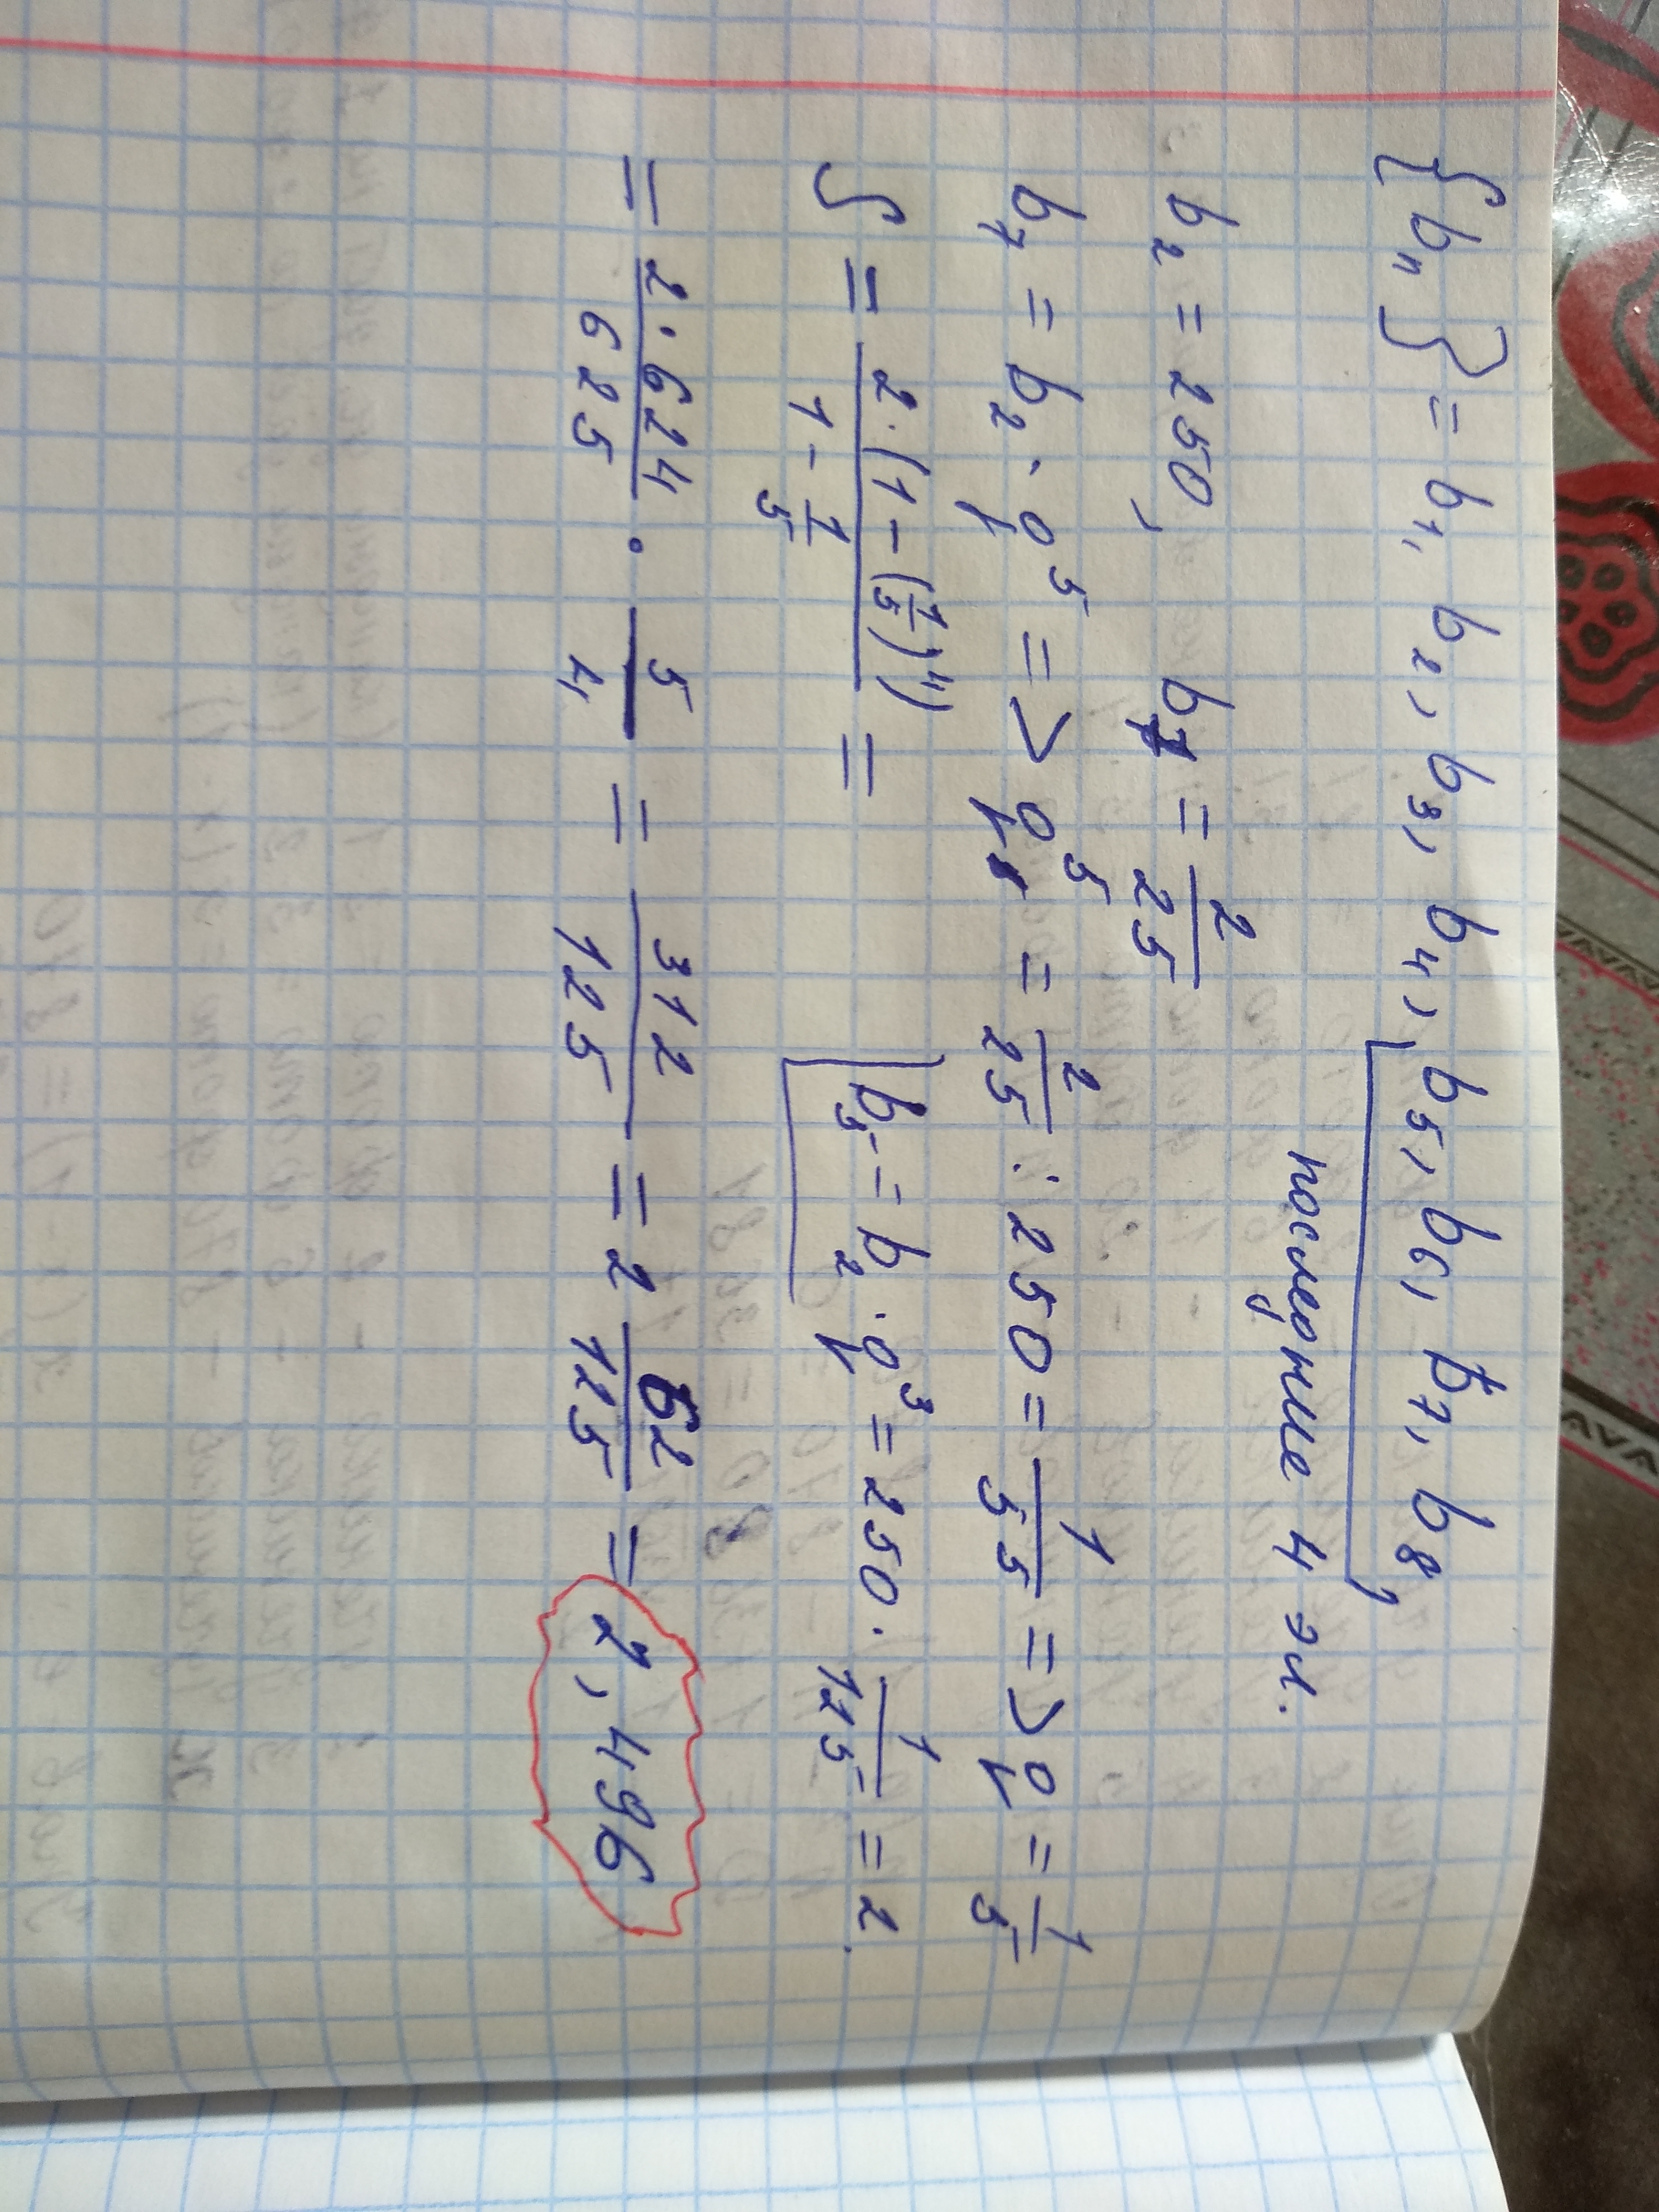 {bₙ} = b₁, b₂, b₃, b₄, b₅, b₆, b₇, b₈,
последние 4 эл.
b₂ = 250, b₇ = 2/25
b₇ = b₂ · q⁵ => q⁵ = 2/25 : 250 = 1/5⁵ => q = 1/5
S = 2·(1 - (1/5)⁴) / (1 - 1/5) = b₅ = b₂ · q³ = 250 · 1/125 = 2.
= 2·624/625 · 5/4 = 312/125 = 2 62/125 = 2,496